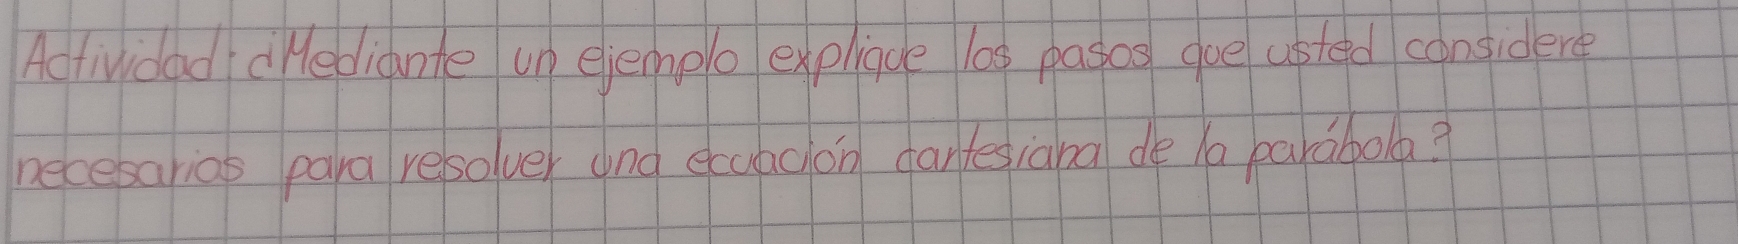 Actividad: ¿Mediante un ejemplo explique los pasos que usted considere
necesarios para resolver una ecuación cartesiana de la parábola?